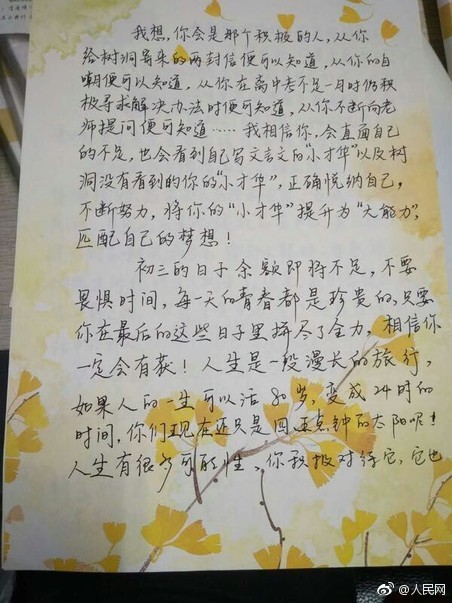 我想,你会是那个积极的人,从你
给树洞寄来的两封信便可以知道,从你的自
嘲便可以知道,从你在离中考不足一月时仍积
极寻求解决办法时便可知道,从你不断向老
师提问便可知道……我相信你,会直面自己
的不足,也会看到自己写文言文的“小才华”以及树
洞没有看到的你的“小才华”,正确悦纳自己,
不断努力,将你的“小才华”提升为“大能力”,
匹配自己的梦想!
初三的日子余额即将不足,不要
畏惧时间,每一天的青春都是珍贵的,只要
你在最后的这些日子里拼尽了全力,相信你
一定会有获!人生是一段漫长的旅行,
如果人的一生可以活80岁,变成24时的
时间,你们现在还只是四五点钟的太阳呢!
人生有很多可能性,你积极对待它,它也
@人民网